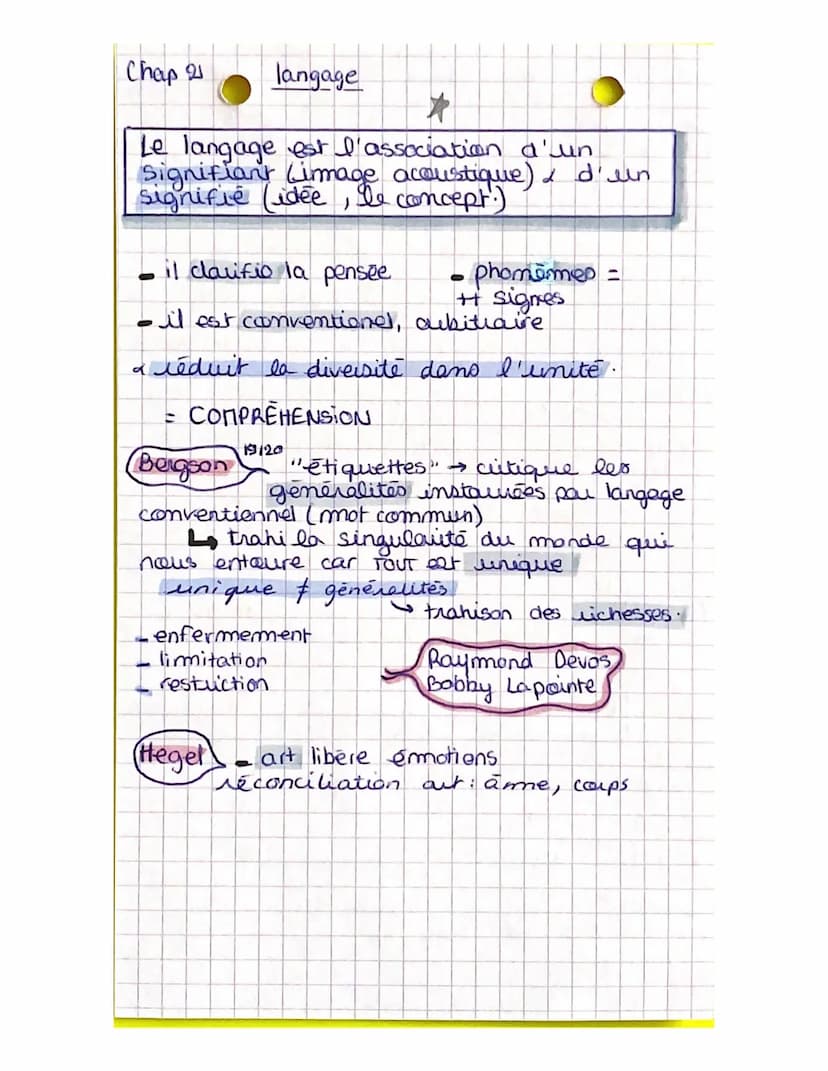 Chap 21 langage
Le langage est l'association d'un
signifiant (image acoustique) & d'un
signifié (idée, le concept.)
- il clarifie la pensée
- phonèmes =
++ signes
- il est conventionel, arbitraire
& réduit la diversité dans l'unité.
= COMPRÉHENSION
Bergson 19/20 "étiquettes" → critique les
généralités instaurées par langage
conventiennel (mot commun)
↳ trahi la singularité du monde qui
nous entoure car TOUT est unique
unique ≠ généralités
→ trahison des richesses.
- enfermement
- limitation
- restriction
Raymond Devos
Bobby Lapointe
Hegel - art libère émotions
réconciliation art : âme, corps